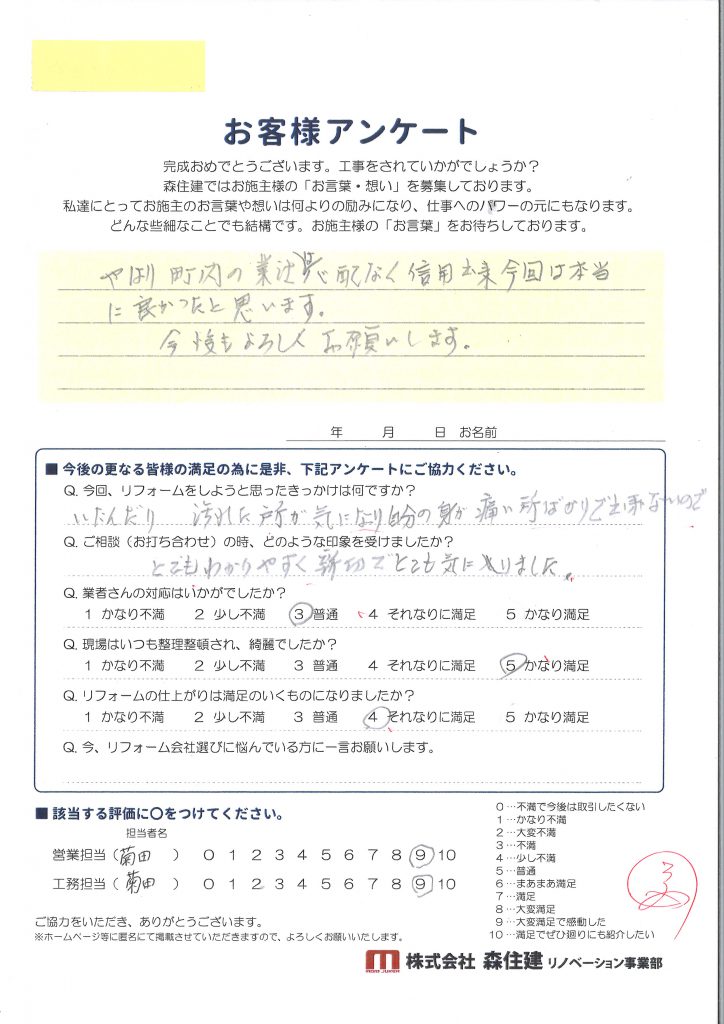 お客様アンケート
完成おめでとうございます。工事をされていかがでしょうか？
森住建ではお施主様の「お言葉・想い」を募集しております。
私達にとってお施主のお言葉や想いは何よりの励みになり、仕事へのパワーの元にもなります。
どんな些細なことでも結構です。お施主様の「お言葉」をお待ちしております。
やはり 町内の業社 心配なく 信用出来 今回は本当
に良かったと思います。
今後もよろしくお願いします。
年 月 日 お名前
■ 今後の更なる皆様の満足の為に是非、下記アンケートにご協力ください。
Q. 今回、リフォームをしようと思ったきっかけは何ですか？
いたんだり 汚れた戸所が気になり自分の身が痛い所ばかりで出来ないので
Q. ご相談（お打ち合わせ）の時、どのような印象を受けましたか？
とてもわかりやすく親切でとても気に入りました。
Q. 業者さんの対応はいかがでしたか？
1 かなり不満 2 少し不満 3 普通 4 それなりに満足 5 かなり満足
Q. 現場はいつも整理整頓され、綺麗でしたか？
1 かなり不満 2 少し不満 3 普通 4 それなりに満足 5 かなり満足
Q. リフォームの仕上がりは満足のいくものになりましたか？
1 かなり不満 2 少し不満 3 普通 4 それなりに満足 5 かなり満足
Q. 今、リフォーム会社選びに悩んでいる方に一言お願いします。
■ 該当する評価に〇をつけてください。
担当者名
営業担当（菊田）0 1 2 3 4 5 6 7 8 9 10
工務担当（菊田）0 1 2 3 4 5 6 7 8 9 10
0…不満で今後は取引したくない
1…かなり不満
2…大変不満
3…不満
4…少し不満
5…普通
6…まあまあ満足
7…満足
8…大変満足
9…大変満足で感動した
10…満足でぜひ廻りにも紹介したい
ご協力をいただき、ありがとうございます。
※ホームページ等に匿名にて掲載させていただきますので、よろしくお願いいたします。
株式会社 森住建 リノベーション事業部